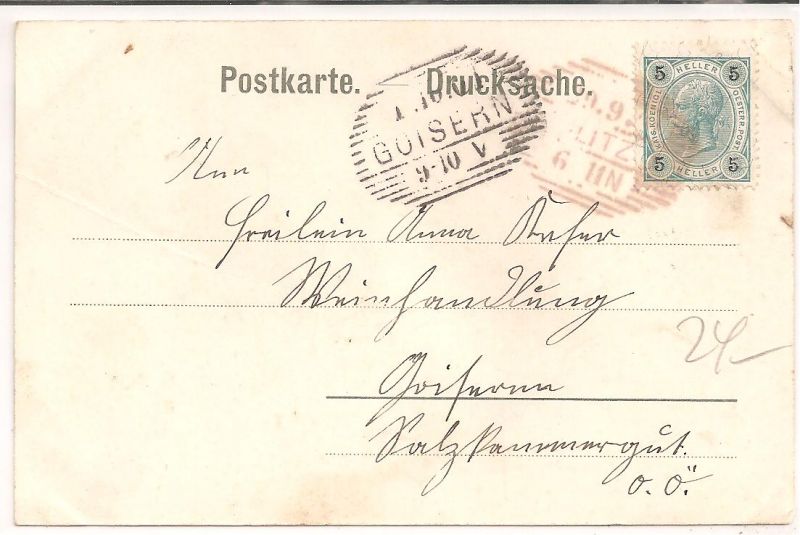 Postkarte. — Drucksache.
5 HELLER 5
KAIS. KOENIGL. OESTERR. POST.
5 HELLER 5
GOISERN
9-10 V
9.9.
LITZ
6 IIN
An
Freilein Anna
Weinhandlung
24-
Goisern
Salzkammergut.
O. Ö.